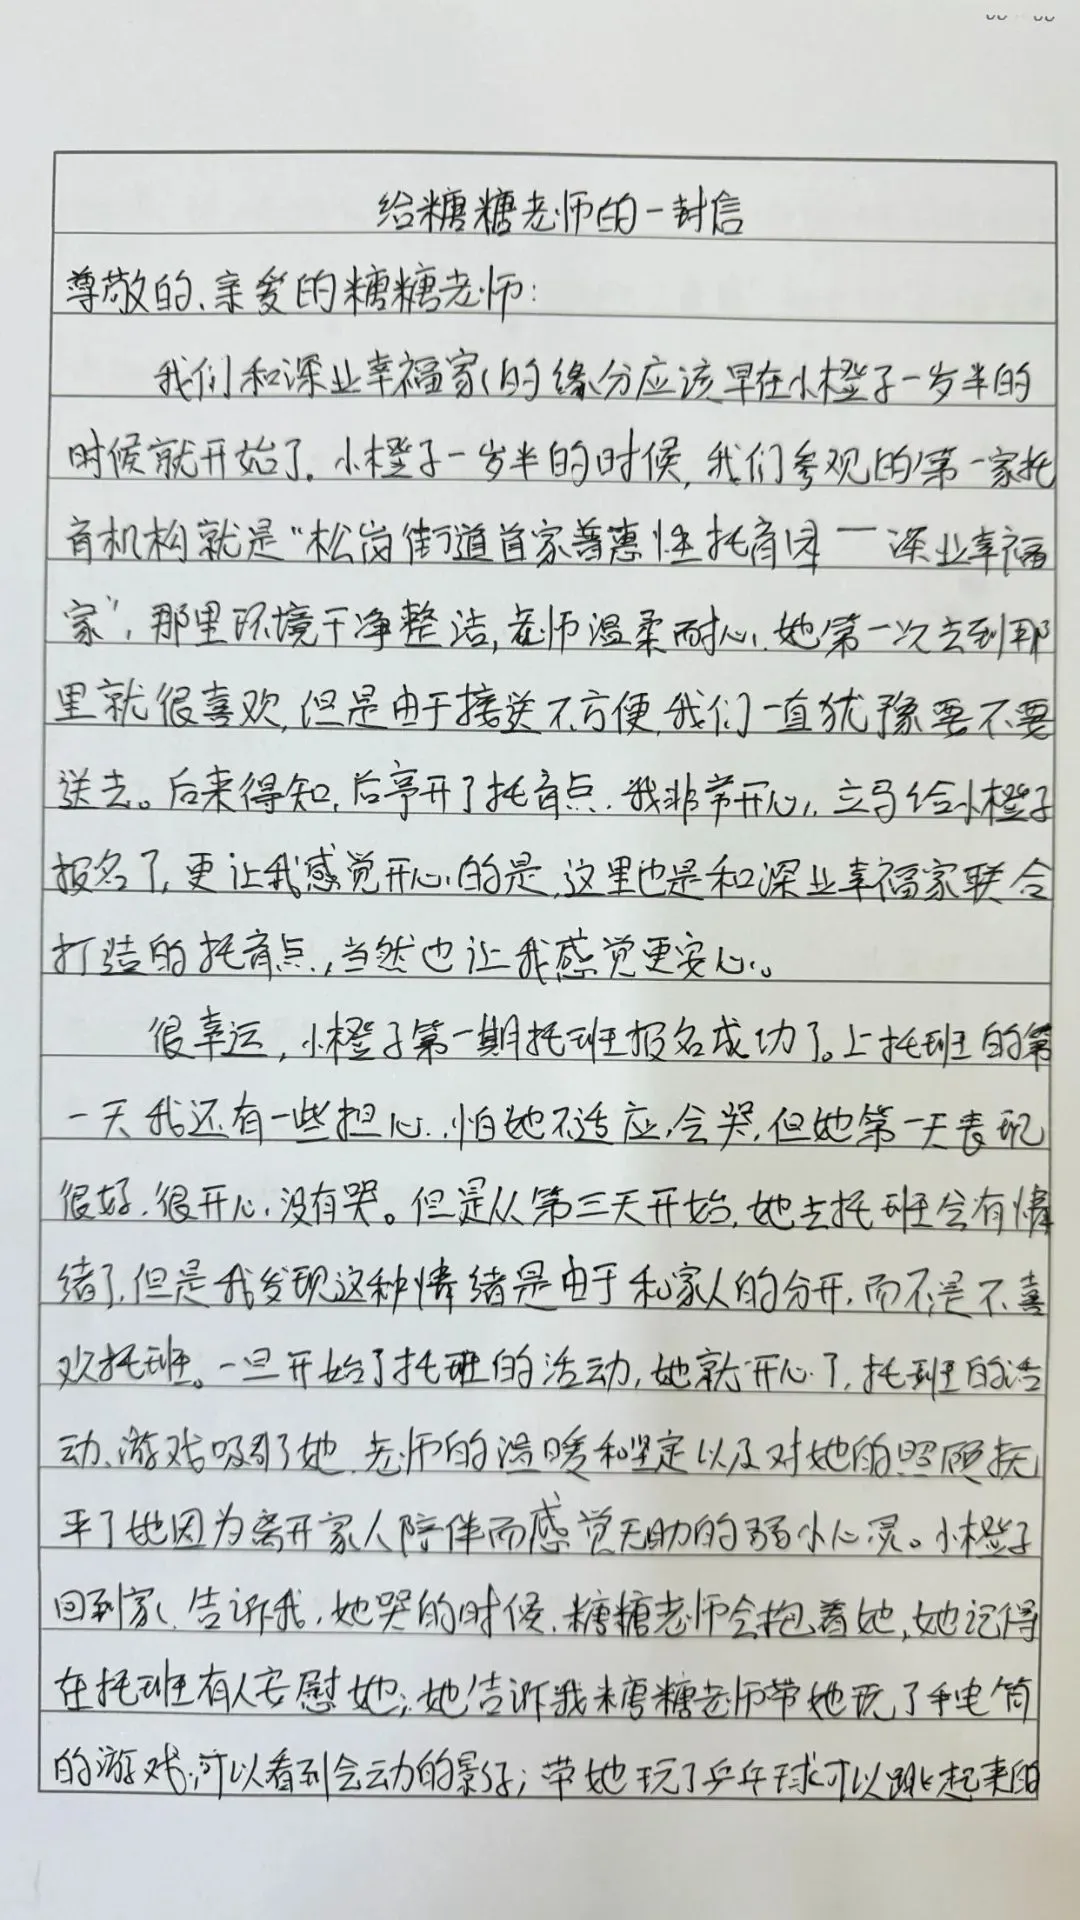 给糖糖老师的一封信
尊敬的、亲爱的糖糖老师：
我们和深业幸福家的缘分应该早在小橙子一岁半的
时候就开始了。小橙子一岁半的时候，我们参观的第一家托
育机构就是“松岗街道首家普惠性托育园——深业幸福
家”，那里环境干净整洁，老师温柔耐心，她第一次去到那
里就很喜欢，但是由于接送不方便，我们一直犹豫要不要
送去。后来得知，后亭开了托育点，我非常开心，立马给小橙子
报名了，更让我感觉开心的是，这里也是和深业幸福家联合
打造的托育点，当然也让我感觉更安心。
很幸运，小橙子第一期托班报名成功了。上托班的第
一天我还有一些担心，怕她不适应，会哭，但她第一天表现
很好，很开心，没有哭。但是从第三天开始，她去托班会有情
绪了，但是我发现这种情绪是由于和家人的分开，而不是不喜
欢托班。一旦开始了托班的活动，她就开心了，托班的活
动、游戏吸引了她，老师的温暖和坚定以及对她的照顾抚
平了她因为离开家人陪伴而感觉无助的弱小心灵。小橙子
回到家，告诉我，她哭的时候，糖糖老师会抱着她，她记得
在托班有人安慰她；她告诉我糖糖老师带她玩了手电筒
的游戏，可以看到会动的影子；带她玩了乒乓球可以跳起来的